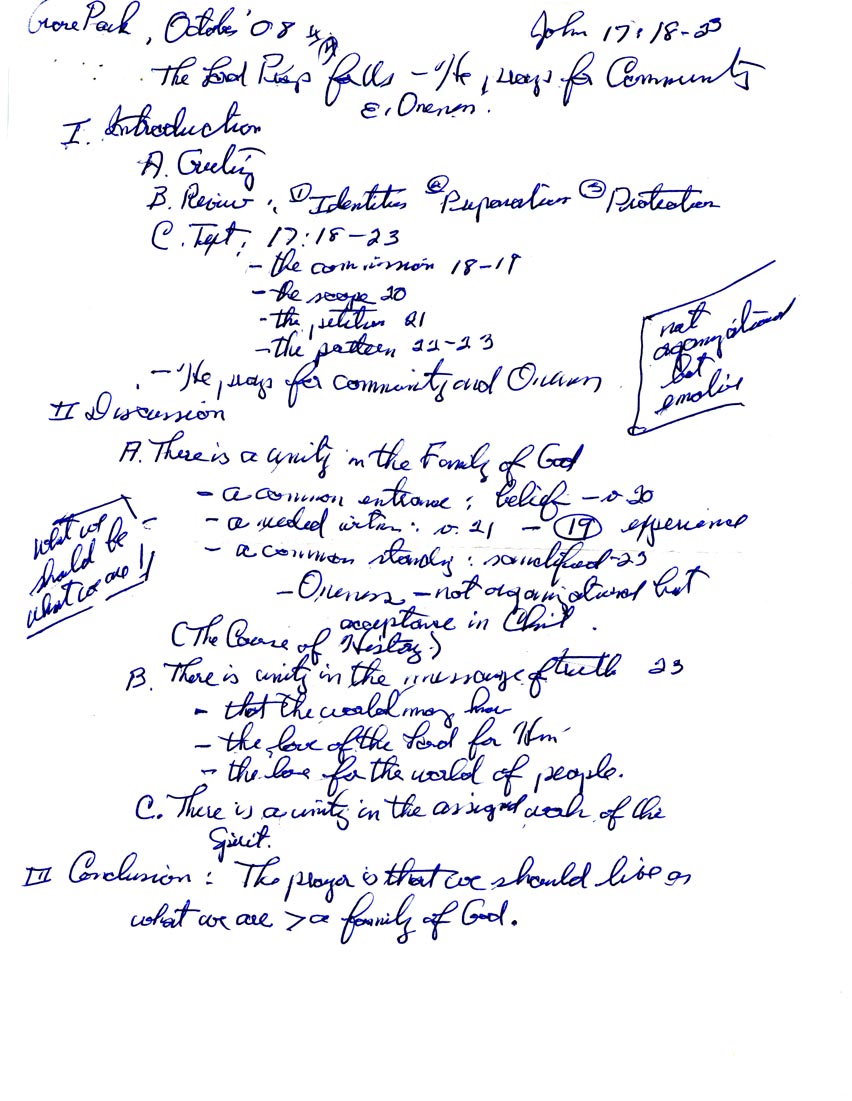 Grove Park, October '08 John 17:18-23
The Lord Prays for Us - "He prays for Community
& Oneness.
I. Introduction
A. Greeting
B. Review: ① Identities ② Preparation ③ Protection
C. Text: 17:18-23
- the commission 18-19
- the scope 20
- the petition 21
- the pattern 22-23
- "He prays for community and Oneness
not
organizational
but
emotive
II Discussion
A. There is a unity in the Family of God
- a common entrance: belief - v. 20
- a needed : v. 21 - 19 experience
- a common standing: sanctified-23
- Oneness - not organizational but
acceptance in Christ.
(The Course of History)
what we
should be
what we are!!
B. There is unity in the message of truth 23
- that the world may know
- the love of the Lord for Him
- the love for the world of people.
C. There is a unity in the assigned work of the
Spirit.
III Conclusion: The prayer is that we should live as
what we are > a family of God.